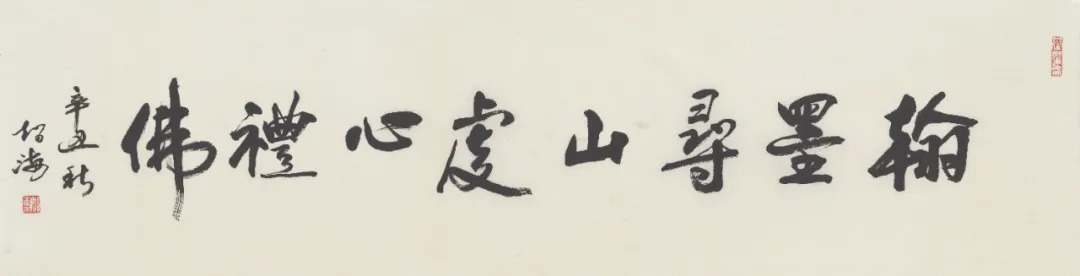 翰墨尋山虔心禮佛
辛丑秋
紹海